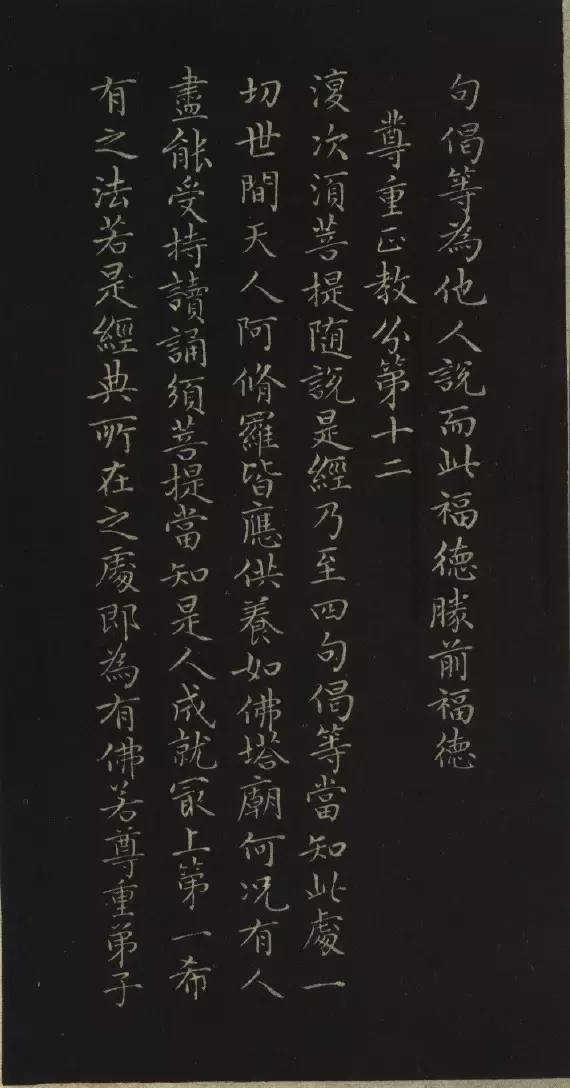 句偈等為他人說而此福德勝前福德
尊重正教分第十二
復次須菩提随說是經乃至四句偈等當知此處一
切世間天人阿脩羅皆應供養如佛塔廟何况有人
盡能受持讀誦須菩提當知是人成就冣上第一希
有之法若是經典所在之處即為有佛若尊重弟子